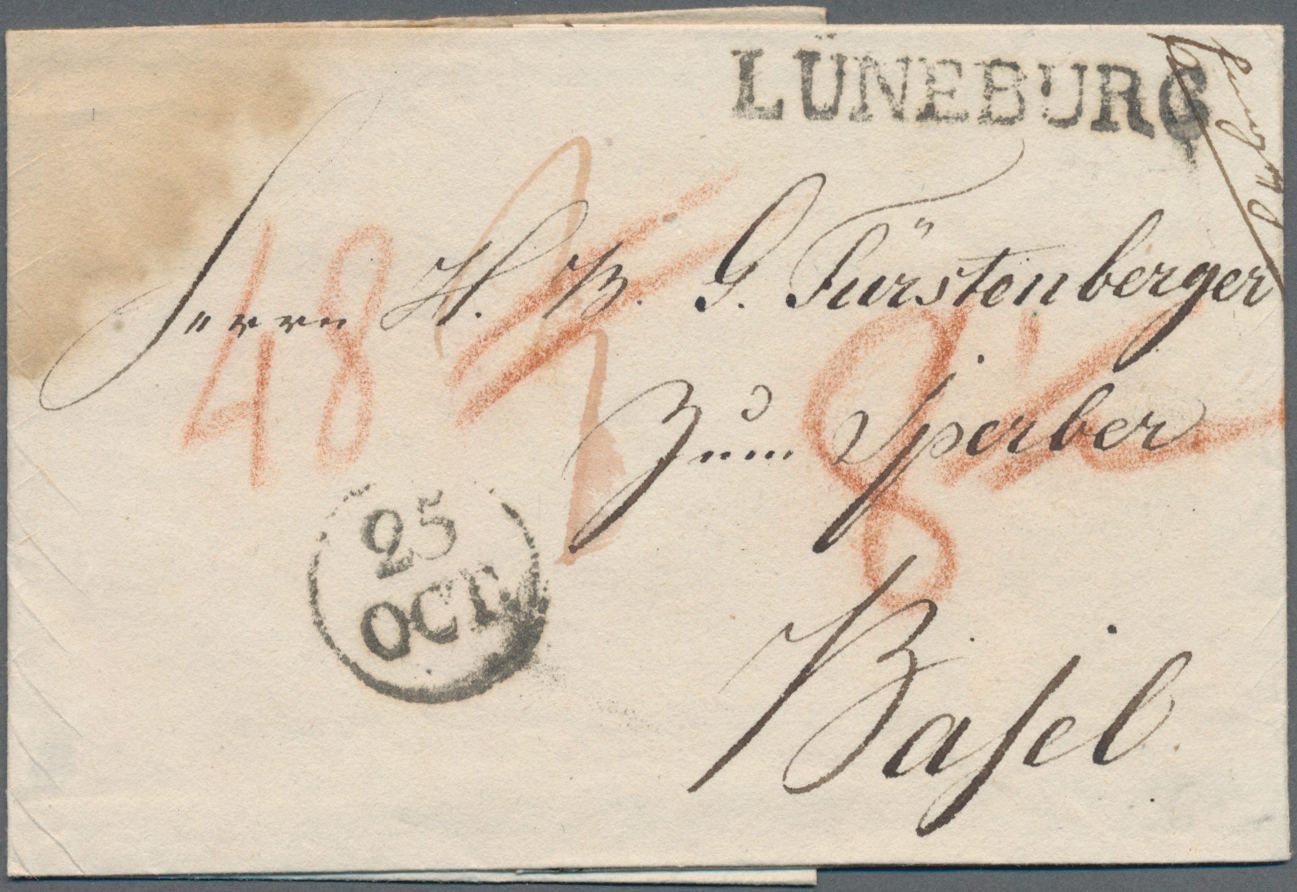 LÜNEBURG
Herrn H. B. G. Fürstenberger
Zum Sperber
Basel
25
OCT.
48
8